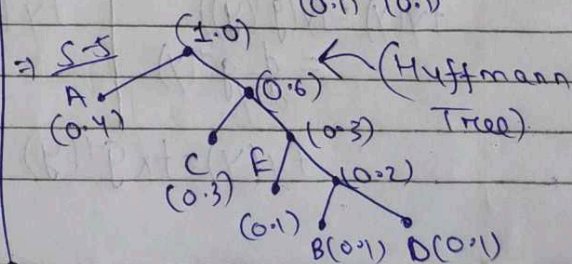 (0.1) (0.1)
(1.0)
⇒ S-5
← (Huffmann Tree)
A
(0.4)
(0.6)
(0.3)
C
(0.3)
E
(0.1)
(0.2)
B(0.1) D(0.1)